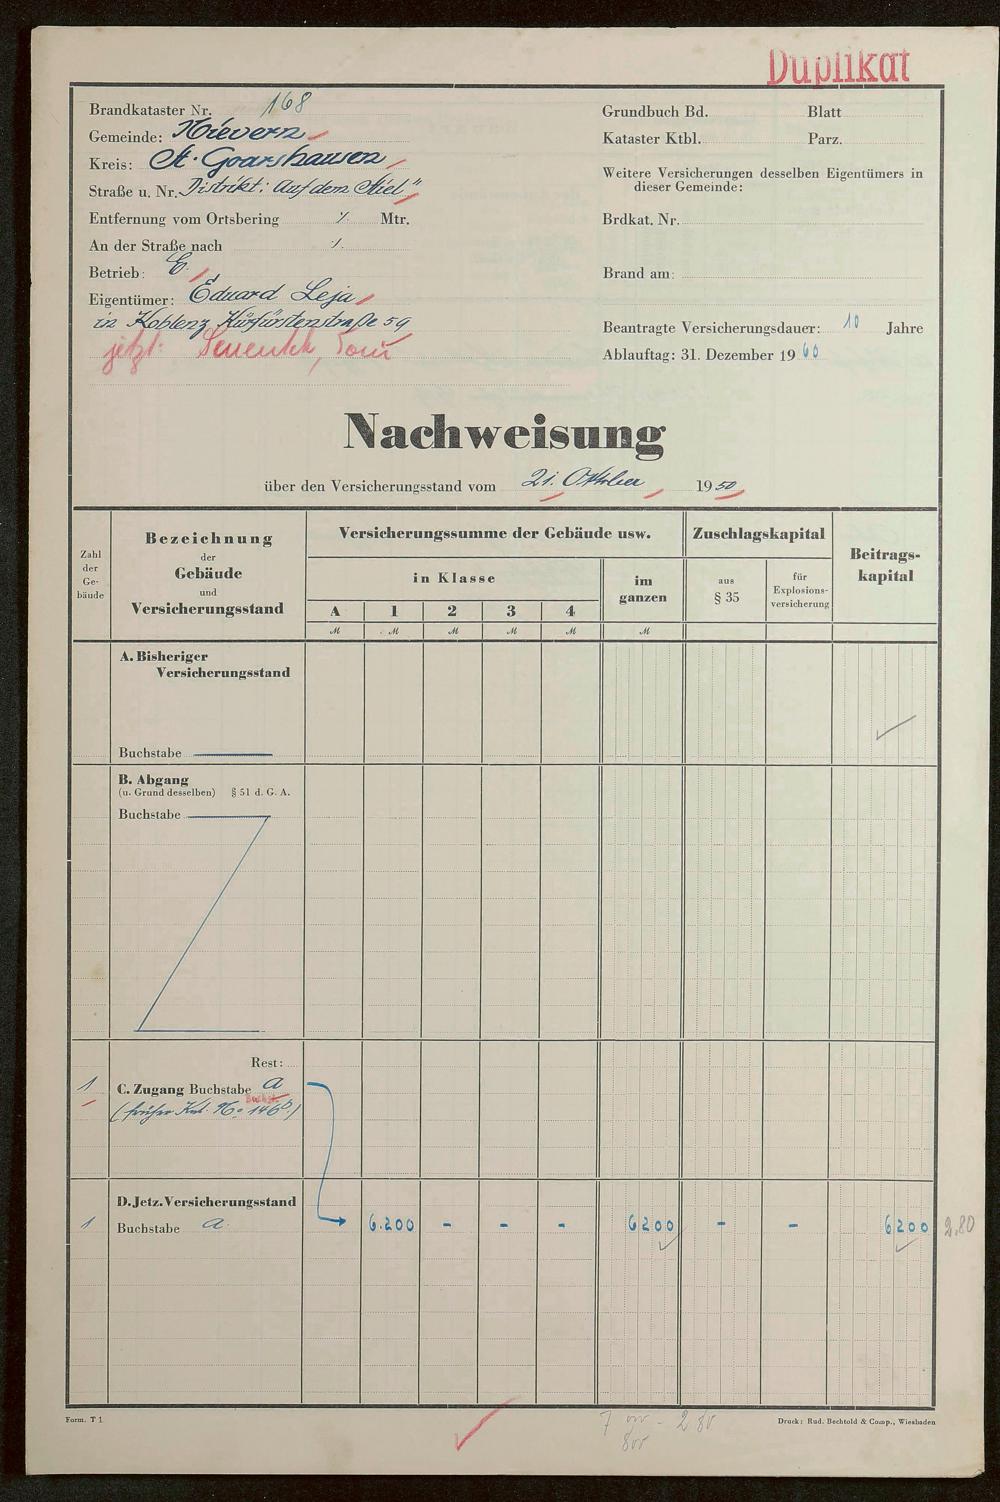 Duplikat
Brandkataster Nr. 168
Gemeinde: Nievern
Kreis: St. Goarshausen
Straße u. Nr. Distrikt: Auf dem Stiel"
Entfernung vom Ortsbering ./. Mtr.
An der Straße nach ./.
Betrieb: E.
Eigentümer: Eduard Leja
in Koblenz Kürfürstenstraße 59
jetzt: Toni
Grundbuch Bd. Blatt
Kataster Ktbl. Parz.
Weitere Versicherungen desselben Eigentümers in
dieser Gemeinde:
Brdkat. Nr.
Brand am:
Beantragte Versicherungsdauer: 10 Jahre
Ablauftag: 31. Dezember 1960
Nachweisung
über den Versicherungsstand vom 21. Oktober 1950
Zahl
der
Ge-
bäude
Bezeichnung
der
Gebäude
und
Versicherungsstand
Versicherungssumme der Gebäude usw.
in Klasse
A 1 2 3 4
im
ganzen
M M M M M M
Zuschlagskapital
aus
§ 35
für
Explosions-
versicherung
Beitrags-
kapital
A. Bisheriger
Versicherungsstand
Buchstabe
B. Abgang
(u. Grund desselben) § 51 d. G. A.
Buchstabe
Rest:
1 C. Zugang Buchstabe a
(früher Kat. No. 146b)
D. Jetz. Versicherungsstand
1 Buchstabe a 6.200 - - - 6200 - - 6200 2,80
Form. T 1
7 - 280
800
Druck: Rud. Bechtold & Comp., Wiesbaden